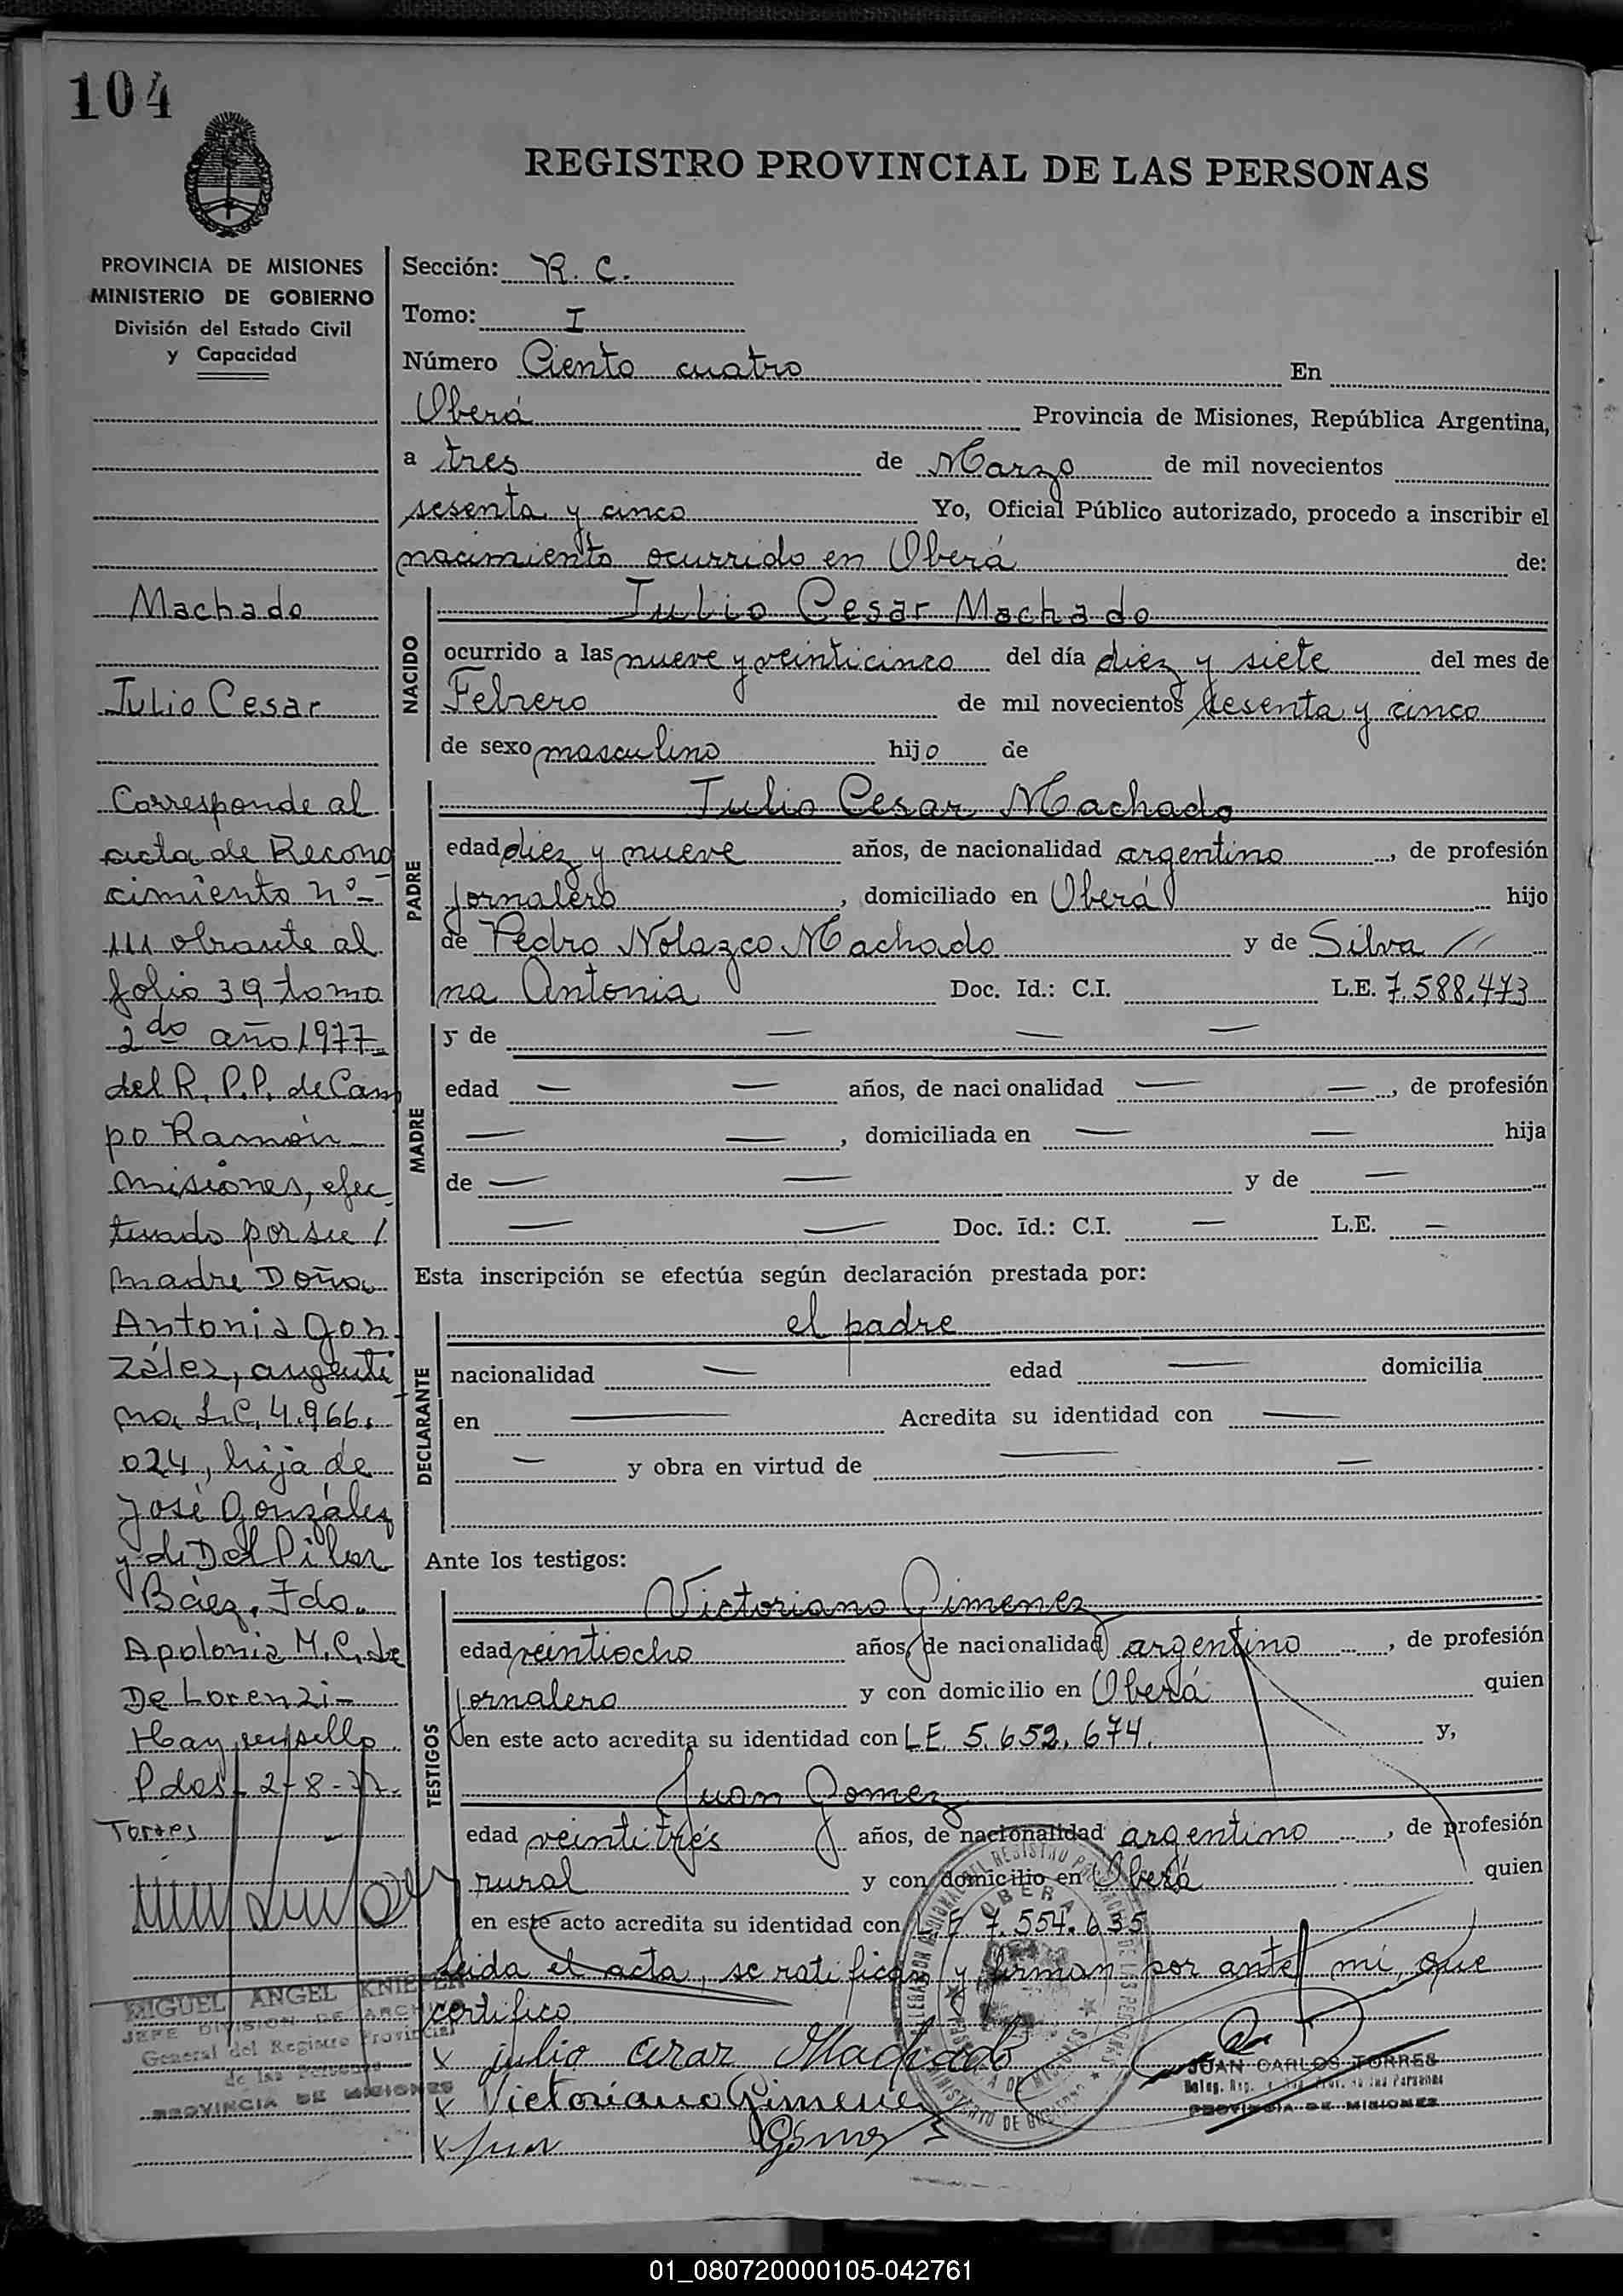 104
REGISTRO PROVINCIAL DE LAS PERSONAS
PROVINCIA DE MISIONES
MINISTERIO DE GOBIERNO
División del Estado Civil
y Capacidad
Machado
Julio Cesar
Corresponde al
acta de Recono
cimiento nº -
111 obrante al
folio 39 tomo
2do año 1977
del R. P.P. de Cam
po Ramón
Misiones, efec
tuado por su /
madre Doña
Antonia Gon
zález, argenti
na L.C. 4.966.
024, hija de
José González
y de Del Pilar
Báez. Fdo.
Apolonia M.C. de
De Lorenzi -
Hay un sello.
Pdas - 2-8-77.
Torres
MIGUEL ANGEL
JEFE DIVISION DE ARCHIVO
General del Registro Provincial
de las Personas
PROVINCIA DE MISIONES
Sección: R. C.
Tomo: I
Número Ciento cuatro En
Oberá Provincia de Misiones, República Argentina,
a tres de Marzo de mil novecientos
sesenta y cinco Yo, Oficial Público autorizado, procedo a inscribir el
nacimiento ocurrido en Oberá de:
NACIDO
Julio Cesar Machado
ocurrido a las nueve y veinticinco del día diez y siete del mes de
Febrero de mil novecientos sesenta y cinco
de sexo masculino hijo de
PADRE
Julio Cesar Machado
edad diez y nueve años, de nacionalidad argentino, de profesión
jornalero, domiciliado en Oberá hijo
de Pedro Nolazco Machado y de Silva //
na Antonia Doc. Id.: C.I. L.E. 7.588.473
MADRE
y de — — —
edad — — años, de nacionalidad — —, de profesión
— —, domiciliada en — — hija
de — — y de —
— — Doc. Id.: C.I. — L.E. —
Esta inscripción se efectúa según declaración prestada por:
DECLARANTE
el padre
nacionalidad — edad — domicilia
en — Acredita su identidad con —
— y obra en virtud de — —
Ante los testigos:
TESTIGOS
Victoriano Gimenez
edad veintiocho años, de nacionalidad argentino, de profesión
jornalero y con domicilio en Oberá quien
en este acto acredita su identidad con L.E. 5.652.674. y,
Juan Gomez
edad veintitrés años, de nacionalidad argentino, de profesión
rural y con domicilio en Oberá quien
en este acto acredita su identidad con L.E. 7.554.635
Leida el acta, se ratifican y firman por ante mi, que
certifico
x julio cesar Machado
x Victoriano Gimenez
x Juan Gómez
OBERA
JUAN CARLOS TORRES
PROVINCIA DE MISIONES
01_080720000105-042761